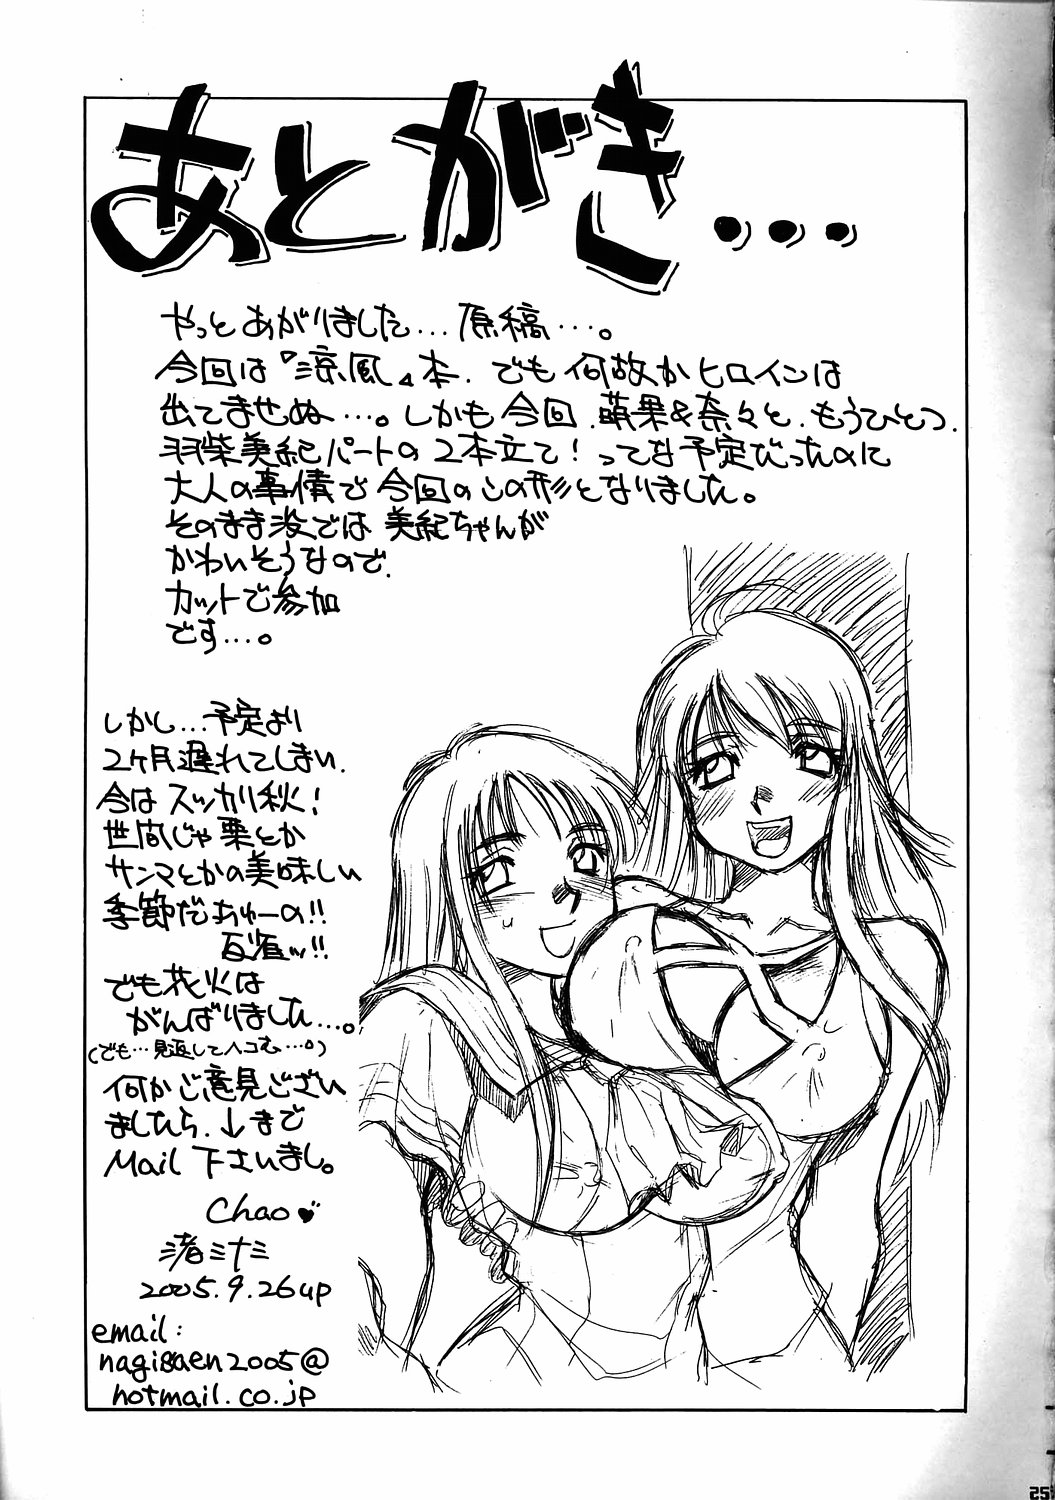 あとがき...
やっとあがりました...原稿...。
今回は『涼風』本. でも何故かヒロインは
出てませぬ...。しかも今回.萌果&奈々と.もうひとつ.
羽柴美紀パートの2本立て！ってな予定だったのに
大人の事情で今回のこの形となりました。
そのまま没では美紀ちゃんが
かわいそうなので.
カットで参加
です...。
しかし...予定より
2ヶ月遅れてしまい.
今はスッカリ秋！
世間じゃ栗とか
サンマとかの美味しい
季節だあゅーの!!
ッ!!
でも花火は
がんばりました...。
(でも...見返してヘコむ...。)
何かご意見ござい
ましたら.↓まで
Mail下さいまし。
Chao♥
渚ミナミ
2005.9.26up
email:
nagisaen2005@
hotmail.co.jp
25